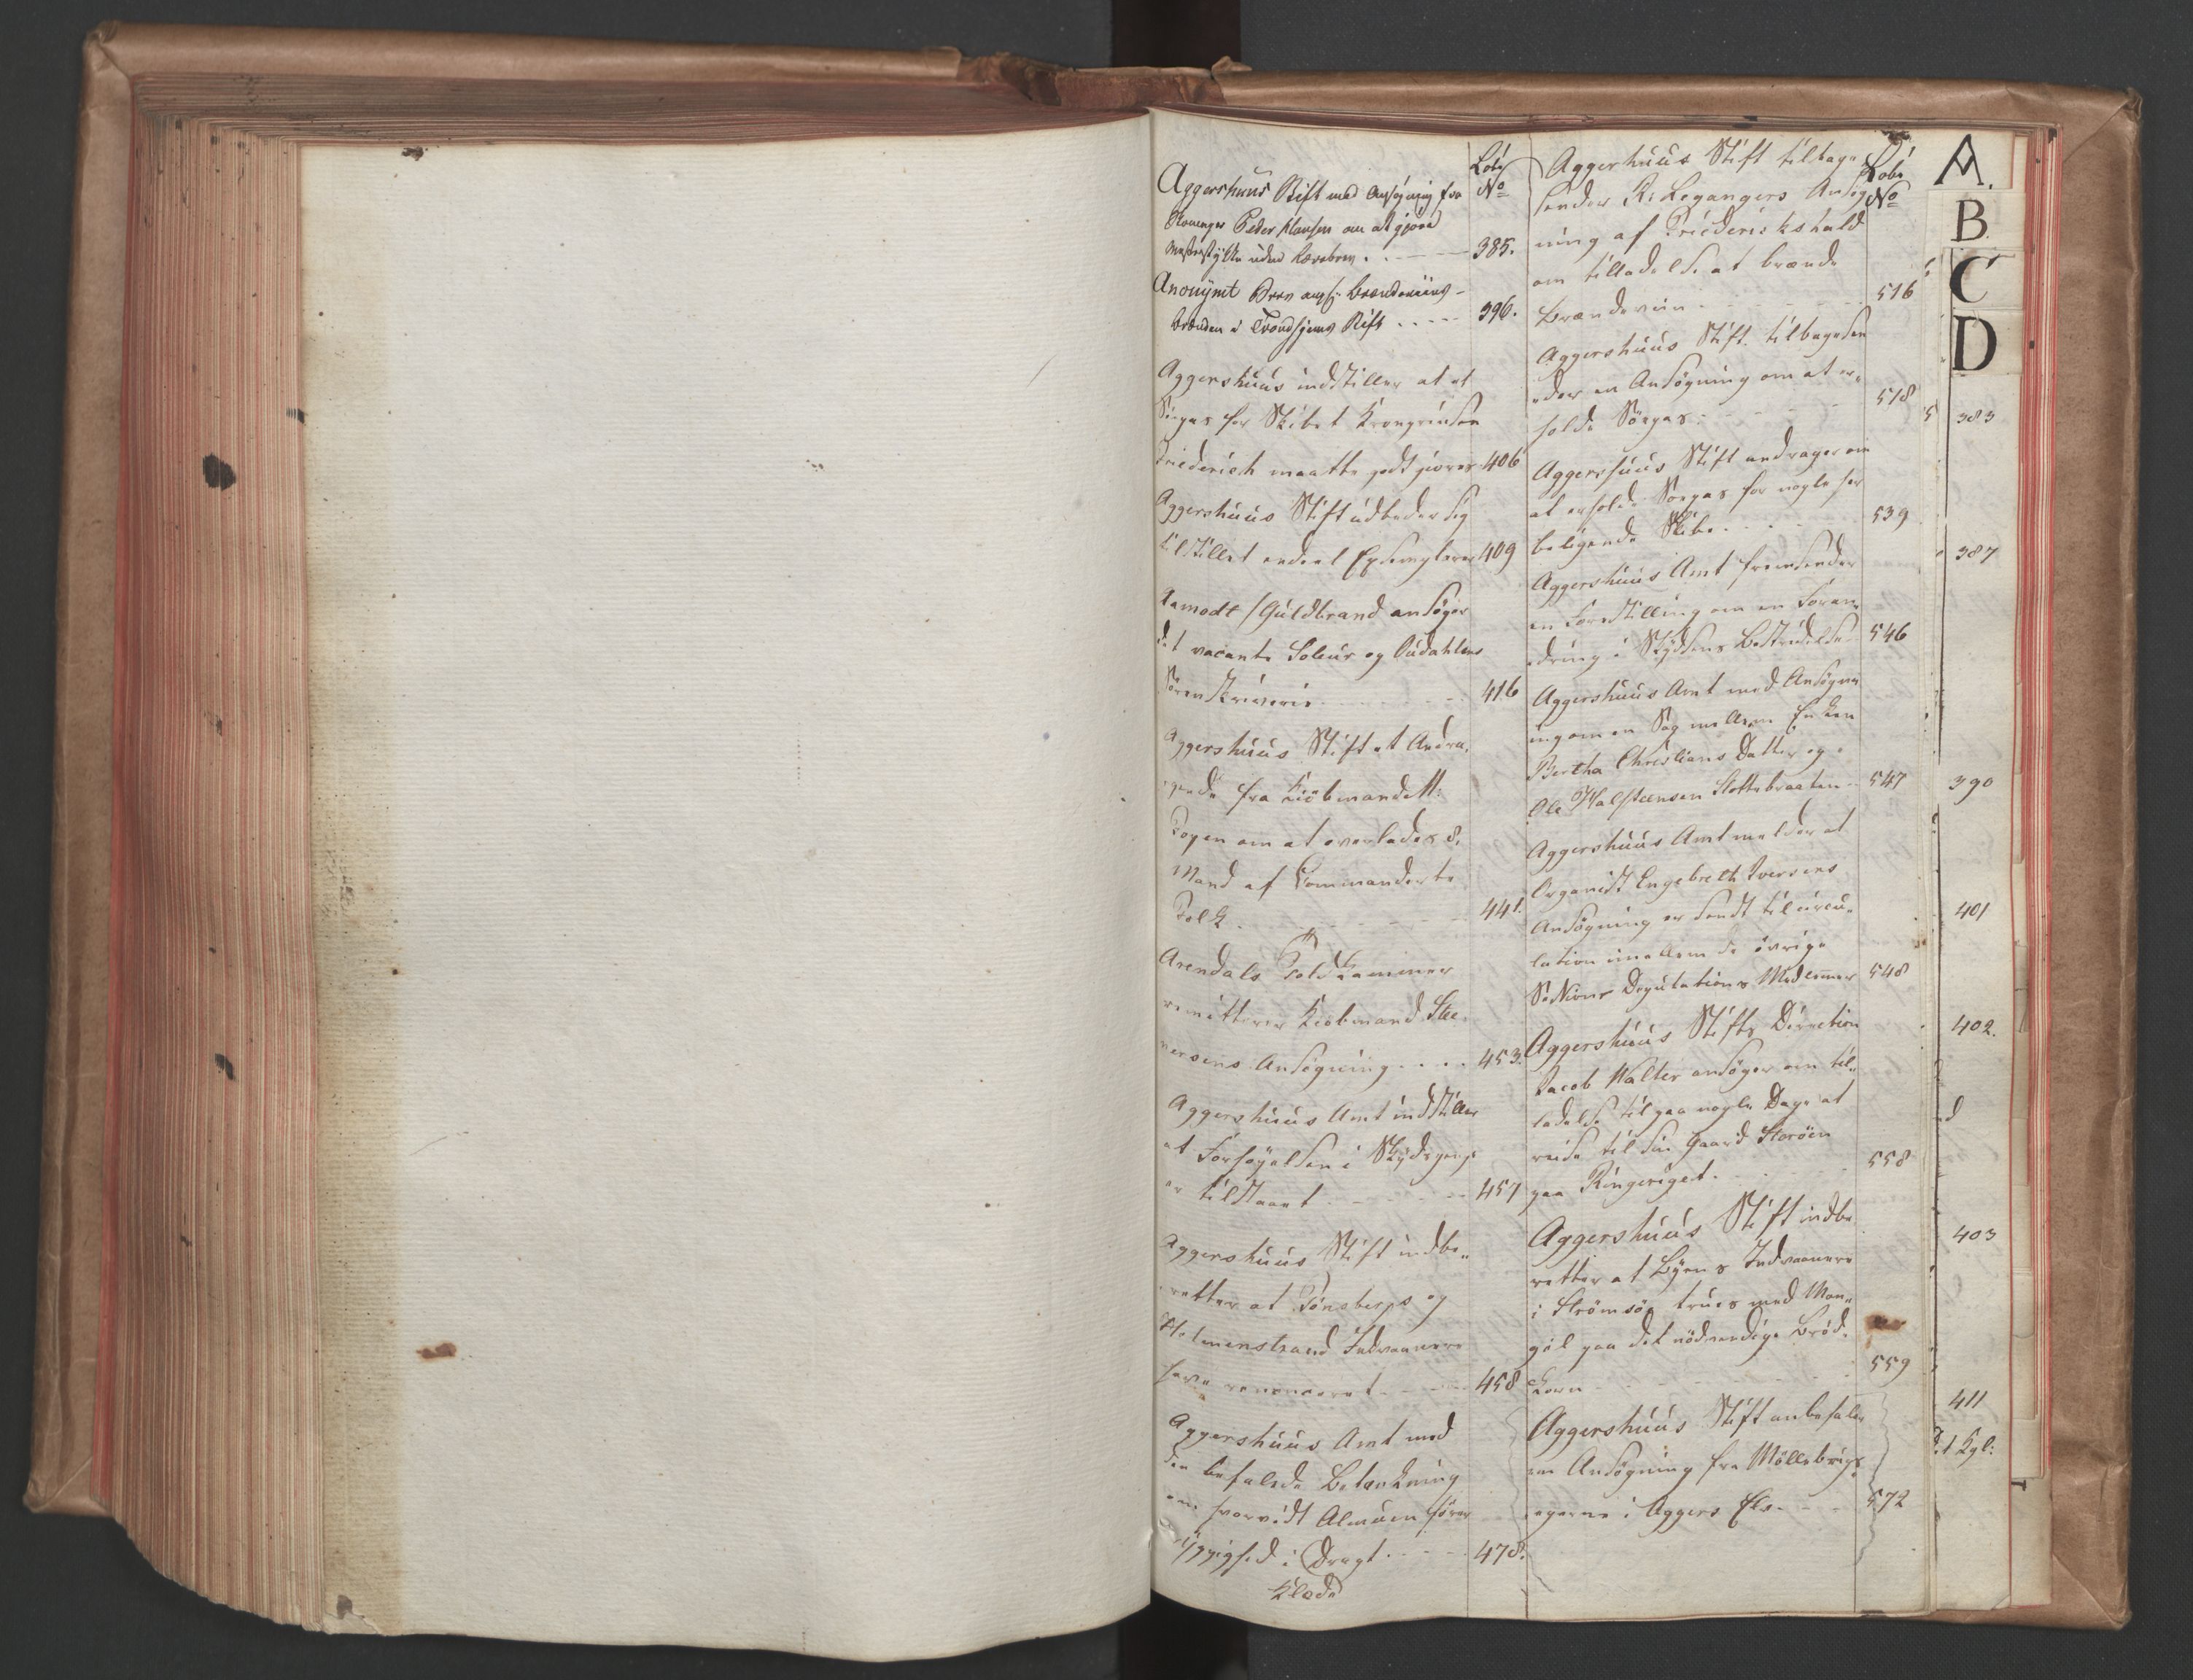 Löbe
No
Aggershuus Stift med Ansögning fra
Peder Hansen om at gjöre
Mesterstykke uden Lærebrev. 385.
Anonymt Brev ang: Brændeviins-
brænden i Trondhjems Stift ..... 396.
Aggershuus indstiller at et
Söepas for Skibet Kronprindsen
Friederich maatte godtgiöres 406
Aggershuus Stift udbeder sig
tilstillet endeel Exemplarer 409
Aamodt /Guldbrand ansöger
det vacante Soleur og Oudahlens
Sorenskriverie 416
Aggershuus Stift et Andra„
gende fra Kiöbmand
om at overlades 8.
Mand af Commanderte
Folk 441.
Arendals Told Kammer
remitterer Kiöbmand Ste„
versens Ansögning .... 453.
Aggershuus Amt indstiller
at Forhöyelsen i
er tilstaaet 457
Aggershuus Stift indbe„
retter at Tönsbergs og
Holmenstrand Indvaanere
have renonceret 458
Aggershuus Amt med
den befalede Betænkning
om hvorvidt Almuen förer
Yppighed i Dragt 478.
Klæde
Löbe
No
Aggershuus Stift tilbage
sender R. Legangers Ansög
ning af Friederichshald
om tilladelse at brænde
Brændeviin 516
Aggershuus Stift tilbagesen
„der en Ansögning om at er„
holde Söepas 518
Aggershuus Stift andrager om
at erholde Söepas for nogle her
beliggende Skibe 539
Aggershuus Amt fremsender
en Forestilling om en Foran„
dring i Skydsens Bestridelse 546
Aggershuus Amt med Ansögn
ing om en Sag mellem Enken
Bertha Christians Datter og
Ole Halsteensen Slottebraaten 547
Aggershuus Amt melder at
Organist Engebreth Iversens
Ansögning er sendt til circu„
lation imellem de övrige
Deputations Medlemmer 548
Aggershuus Stifts Direction
Jacob Walter ansöger om til„
ladelse til paa nogle Dage at
reise til sin Gaard Storöen
paa Ringeriget 558
Aggershuus Stift indbe
retter at Byens Indvaanere
i Strömsöe trues med Man„
gel paa det nödvendige Bröd„
Korn 559
Aggershuus Stift anbefaler
en Ansögning fra Möllebrugs
egerne i Aggers Elv 572
A.
B.
C
D
383
387
390
401
402.
403
411
Det Kgl: